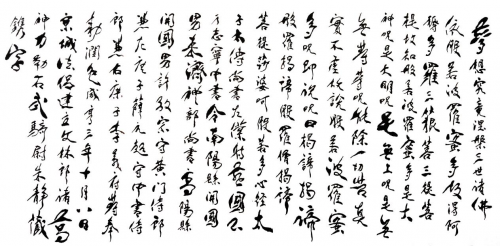 夢想究竟涅槃三世諸佛
依般若波羅蜜多故得阿
耨多羅三藐三菩
提故知般若波羅蜜多是大
神咒是大明咒是無上咒是
無等等咒能除一切苦真
實不虛故說般若波羅蜜
多咒即說咒曰揭諦揭諦
般羅揭諦般羅僧揭諦
菩提莎婆呵般若多心經太
子太傅尚書左僕射燕國公于
志寧中書令南陽縣開國
男來濟禮部尚書高陽縣
開國男許敬宗守黃門侍郎
兼左庶子薛元超守中書侍
郎兼右庶子李義府等奉
敕潤色咸亨三年十月八日
京城法侶建立文林郎諸葛
神力勒石武騎尉朱靜藏
鐫字